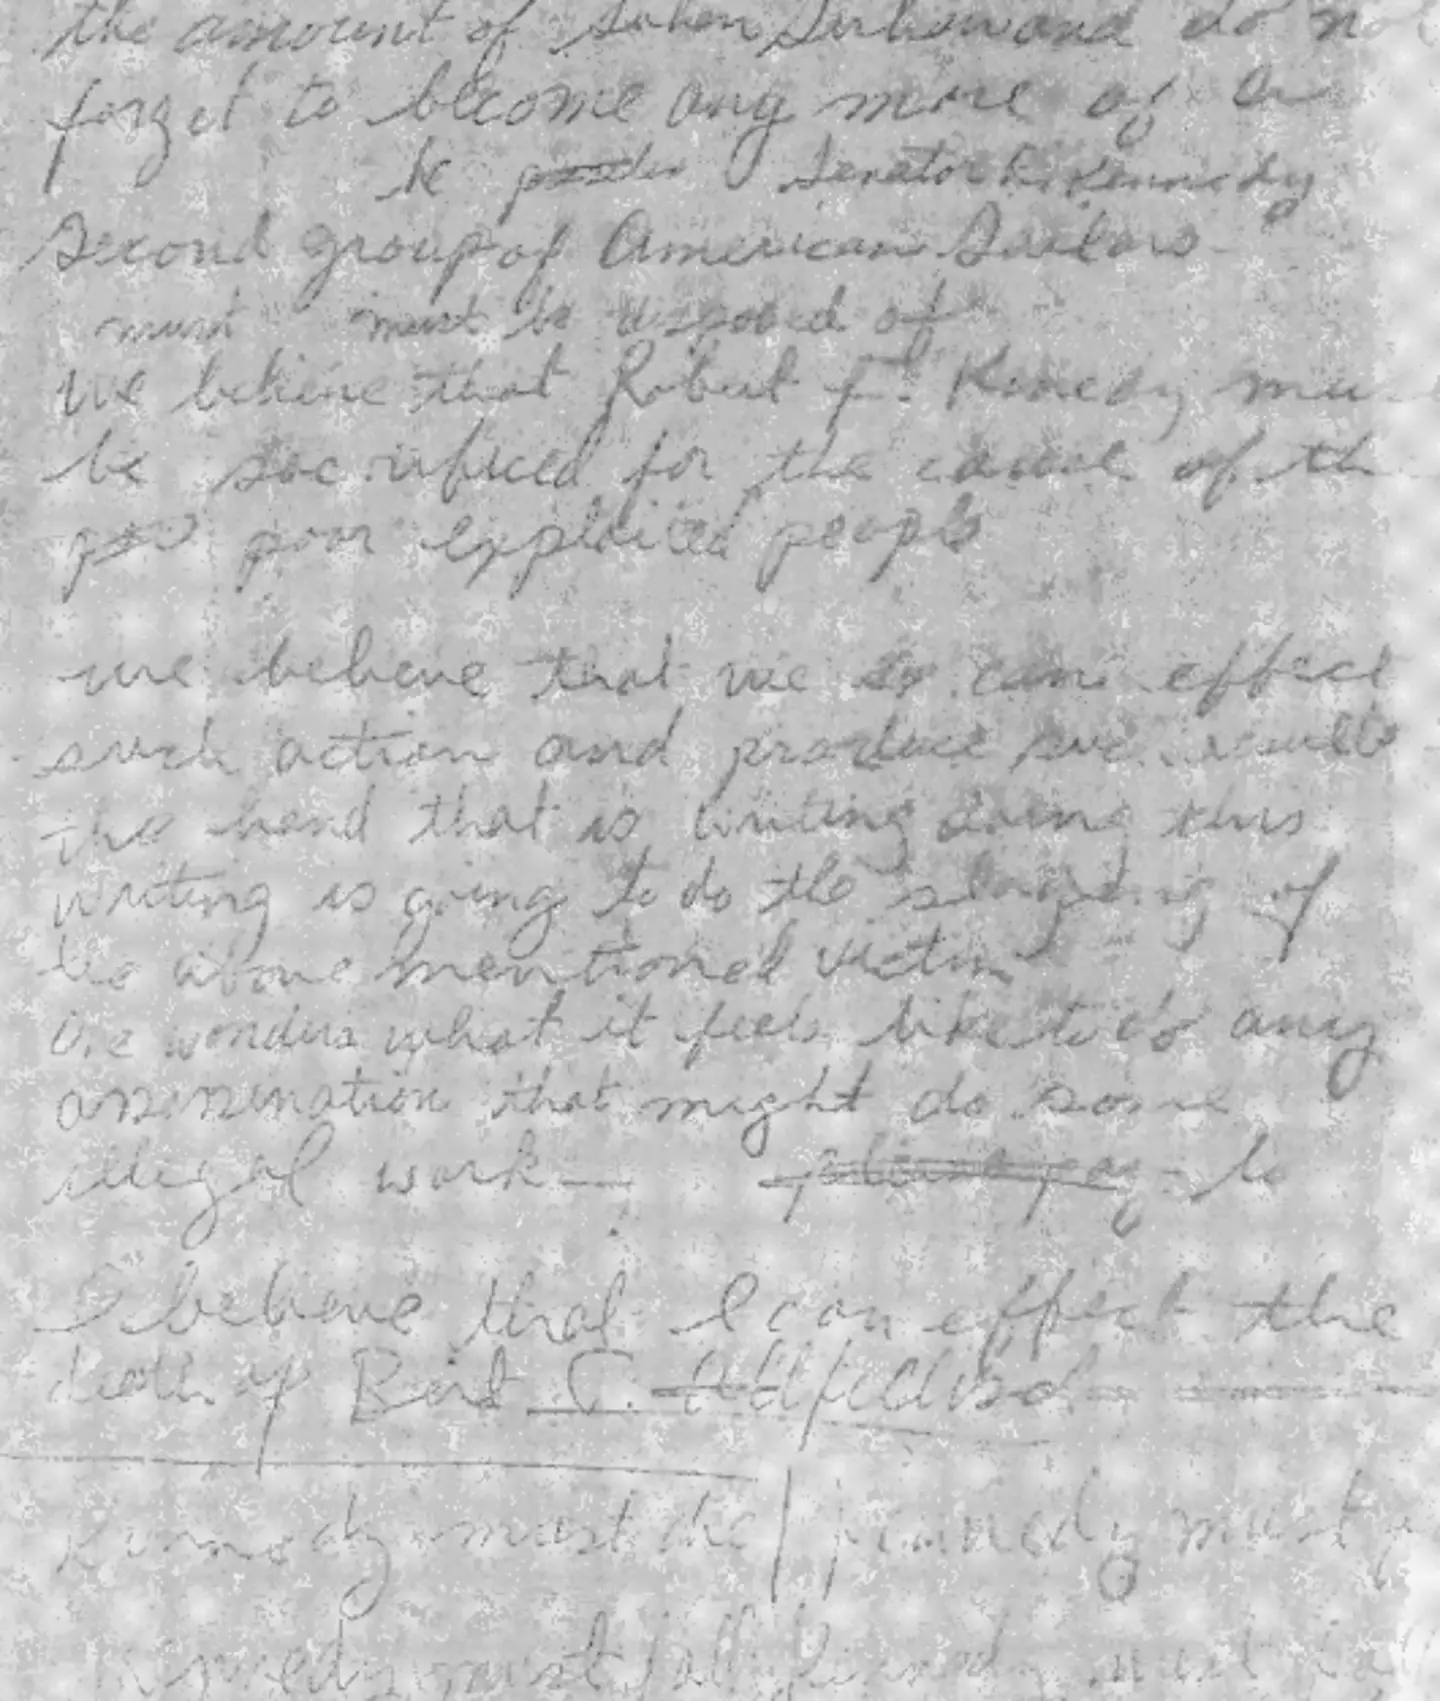 the amount of Sirhan and do no
forget to become any more of a
be Senator R. Kennedy
Second group of American Sailors
must must be disposed of
We believe that Robert F. Kennedy mu
be sacrificed for the cause of th
poor exploited people
we believe that we can effect
such action and produce such results
the hand that is writing doing this
writing is going to do the slaying of
the above mentioned victim
One wonders what it feels like to do any
assassination that might do some
illegal work
I believe that I can effect the
death of Bert C.
Kennedy must die Kennedy must
Kennedy must fall Kennedy must fall